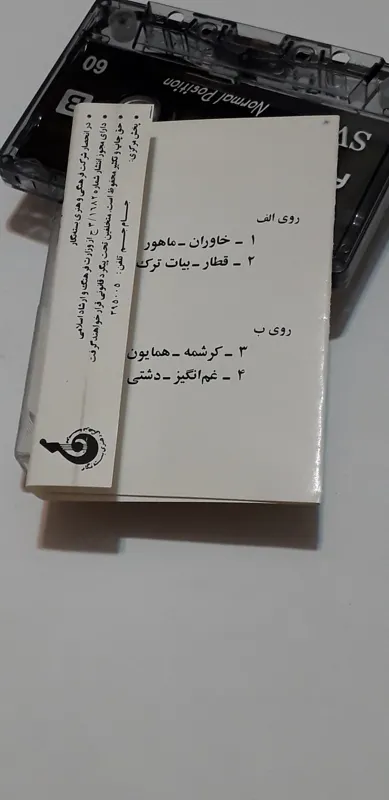 60
Normal Position
B
روی الف
۱ ـ خاوران ـ ماهور
۲ ـ قطار ـ بیات ترک
روی ب
۳ ـ کرشمه ـ همایون
۴ ـ غم‌انگیز ـ دشتی
• در انحصار شرکت فرهنگی و هنری بسته‌نگار
• دارای مجوز انتشار شماره ۳/۱۶۸۲ ح از وزارت فرهنگ و ارشاد اسلامی
• حق چاپ و تکثیر محفوظ است. متخلفین تحت پیگرد قانونی قرار خواهند گرفت
• پخش مرکزی:
جام جم تلفن: ۳۹۵۰۰۵